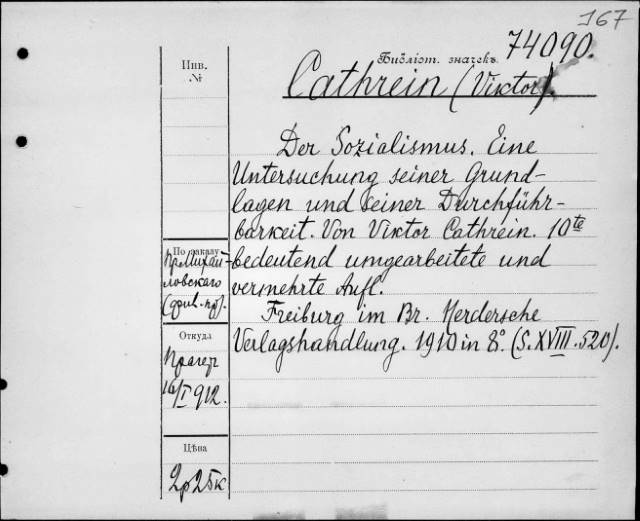 167
74090.
Библіот. значекъ
Инв.
№
Cathrein (Viktor).
Der Sozialismus. Eine
Untersuchung seiner Grund-
lagen und seiner Durchführ-
barkeit. Von Viktor Cathrein. 10te
bedeutend umgearbeitete und
vermehrte Aufl.
Freiburg im Br. Herdersche
Verlagshandlung. 1910 in 8°. (S. XVIII. 520).
По заказу
пр. Михай-
ловскаго
Откуда
Прагер
16/I 912.
Цѣна
2р 25к